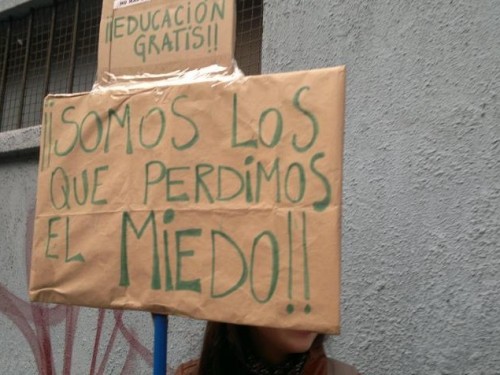 ¡¡EDUCACIÓN
GRATIS!!
¡¡SOMOS LOS
QUE PERDIMOS
EL MIEDO!!